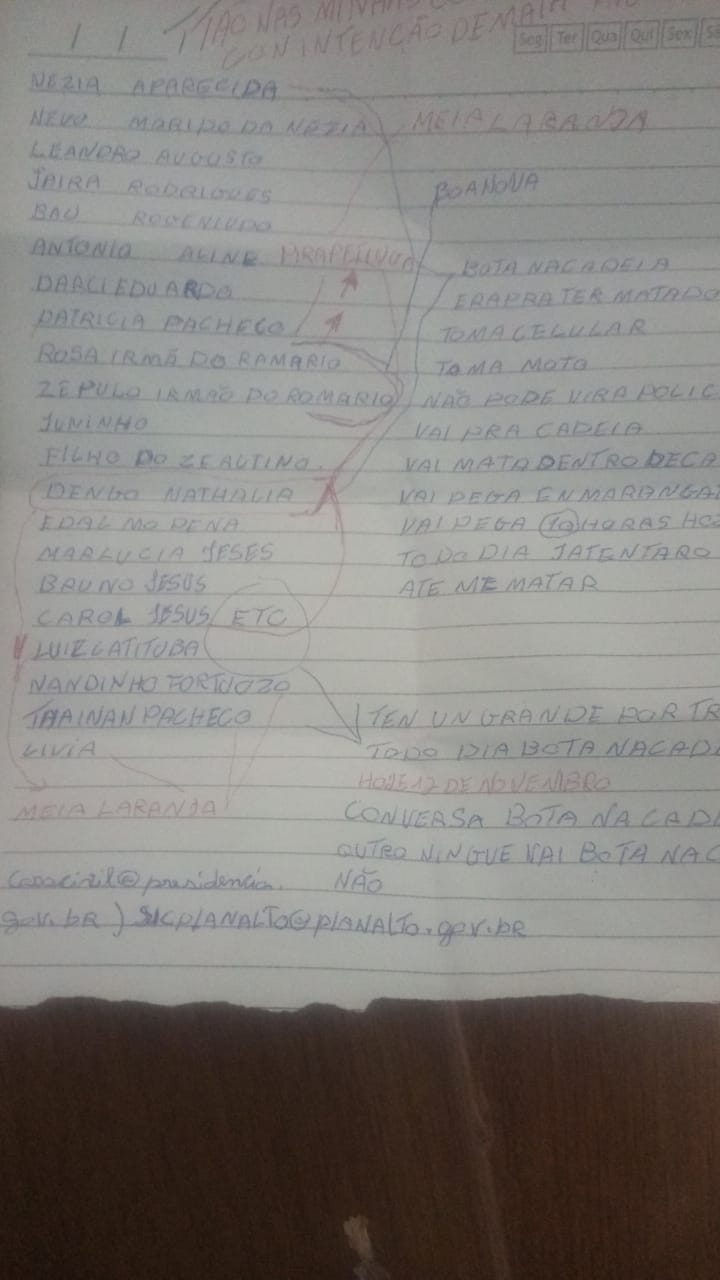 TÃO NAS MINHAS
CON INTENÇÃO DE MATA
Seg Ter Qua Qui Sex
NEZIA APARECIDA
NEVO MARIDO DA NEZIA MEIA LARANJA
LEANDRO AUGUSTO
JAIRA RODRIGUES BOA NOVA
BAU
ANTONIO ALINE BOTA NA CADEIA
DARCI EDUARDO ERA PRA TER MATADO
PATRICIA PACHECO TOMA CELULAR
ROSA IRMÃ DO RAMARIO TOMA MOTO
ZEPULO IRMÃO DO ROMARIO NÃO PODE VIRA POLIC
JUNINHO VAI PRA CADEIA
FILHO DO ZE ALTINO VAI MATA DENTRO DE CA
DENGO NATHALIA VAI PEGA EN MARANGA
EDALMO PENA VAI PEGA 10 HORAS HO
MARLUCIA JESES TODO DIA JA TENTARO
BRUNO JESUS ATE ME MATAR
CAROL JESUS ETC
LUIZ CATITUBA
NANDINHO TORTUOZO
THAINAN PACHECO TEN UN GRANDE POR TR
LIVIA TODO DIA BOTA NA CADE
HOJE 12 DE NOVEMBRO
MEIA LARANJA CONVERSA BOTA NA CAD
OUTRO NINGUE VAI BOTA NA C
casacivil@presidencia. NÃO
gov.br) SICPLANALTO@PLANALTO.gov.br